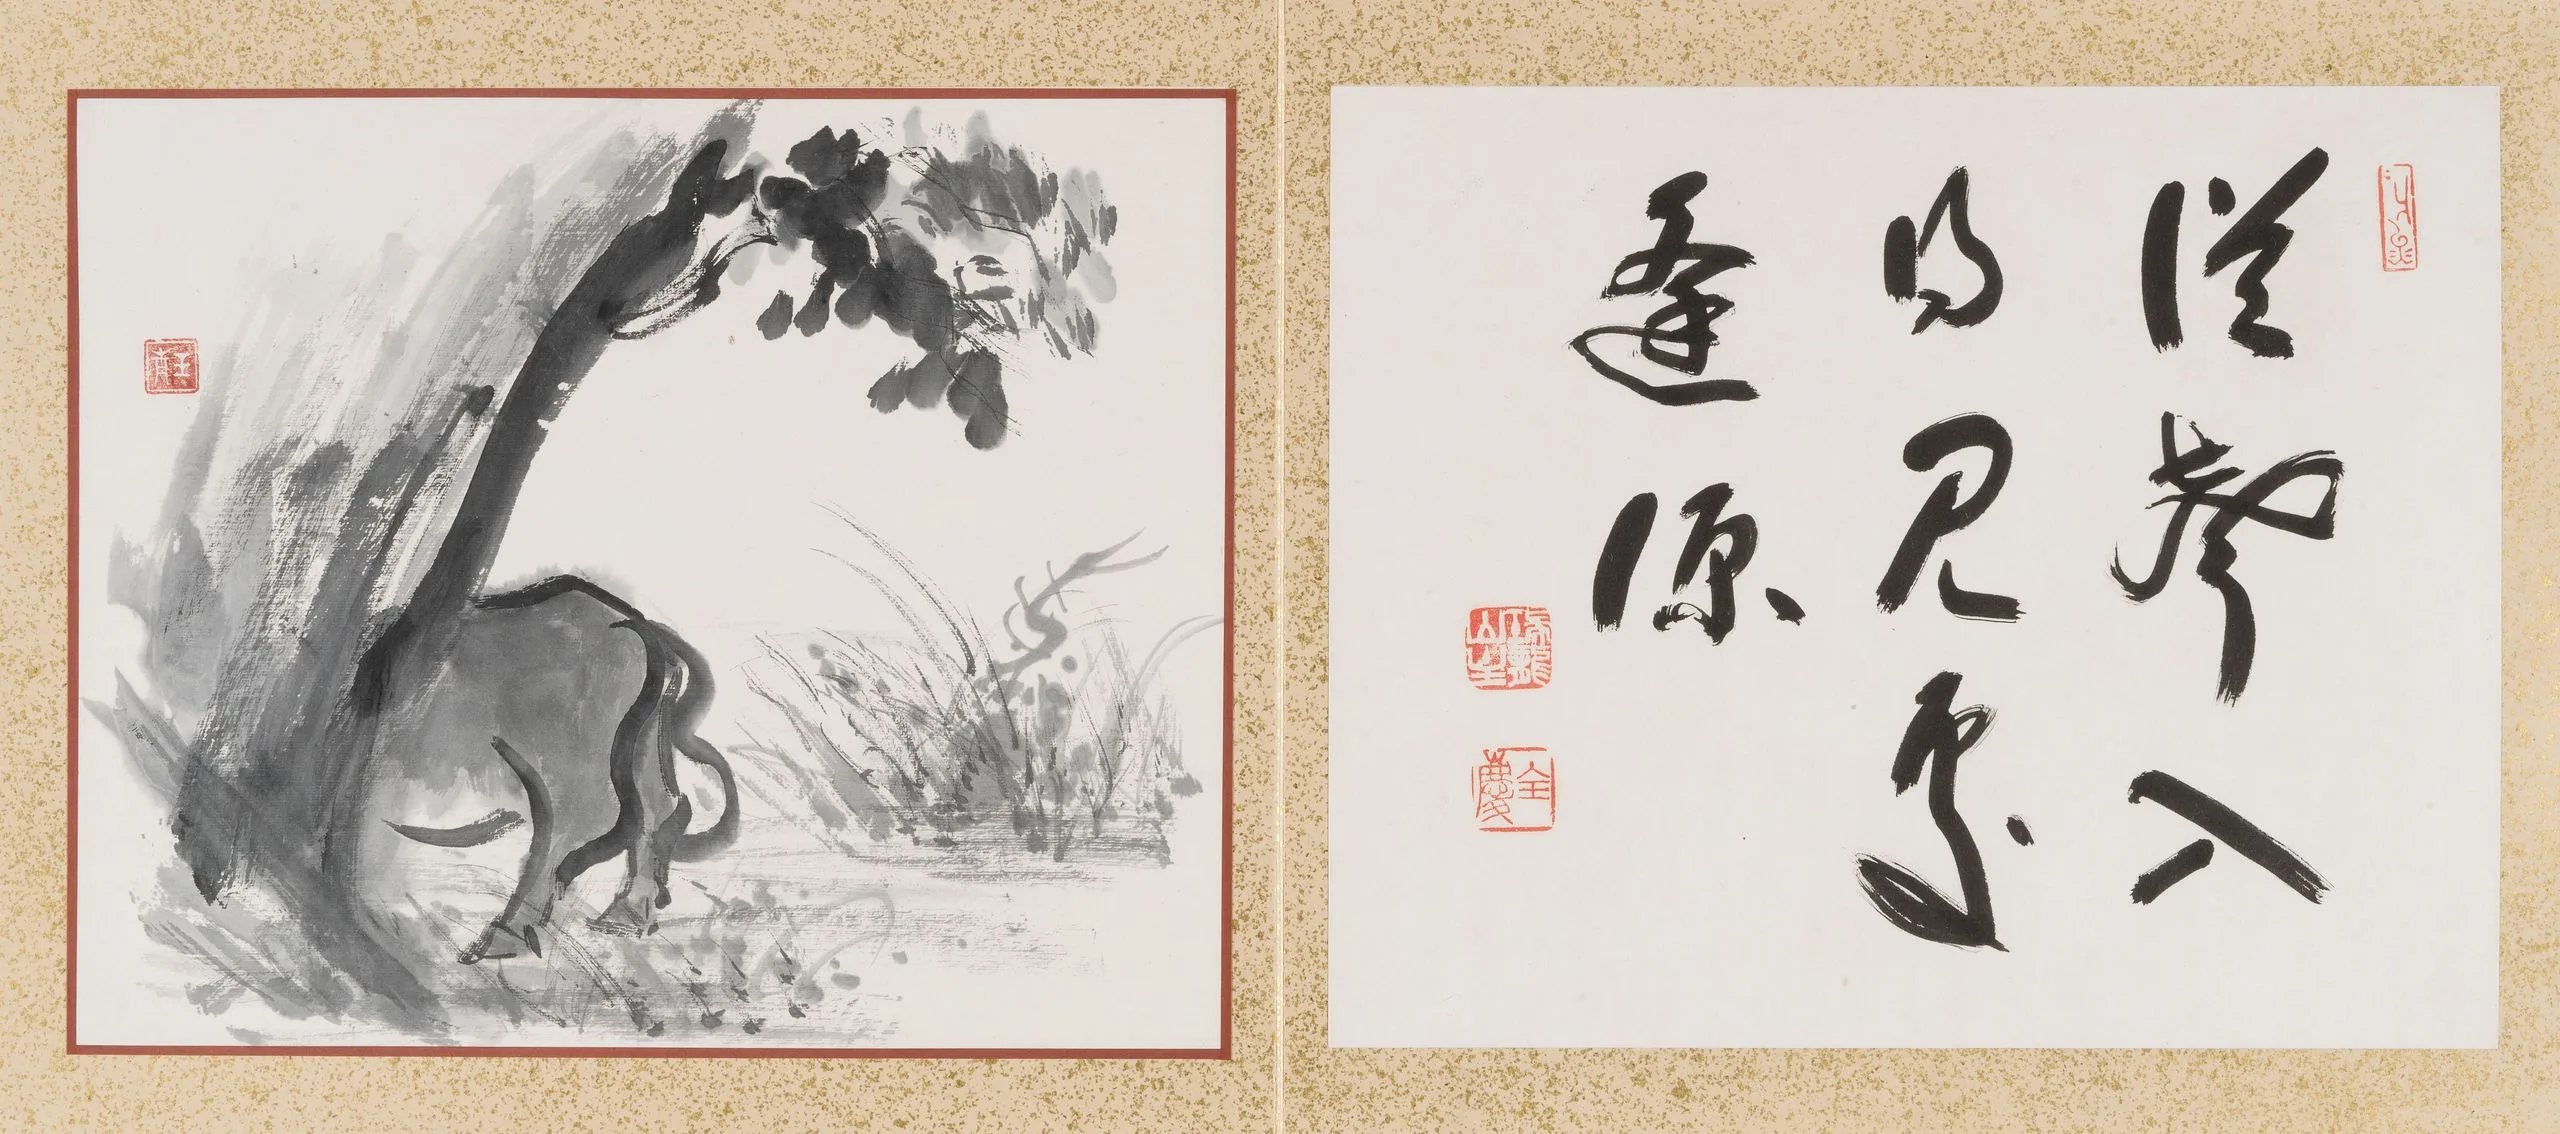 從聲入
得見處
逢源
全慶